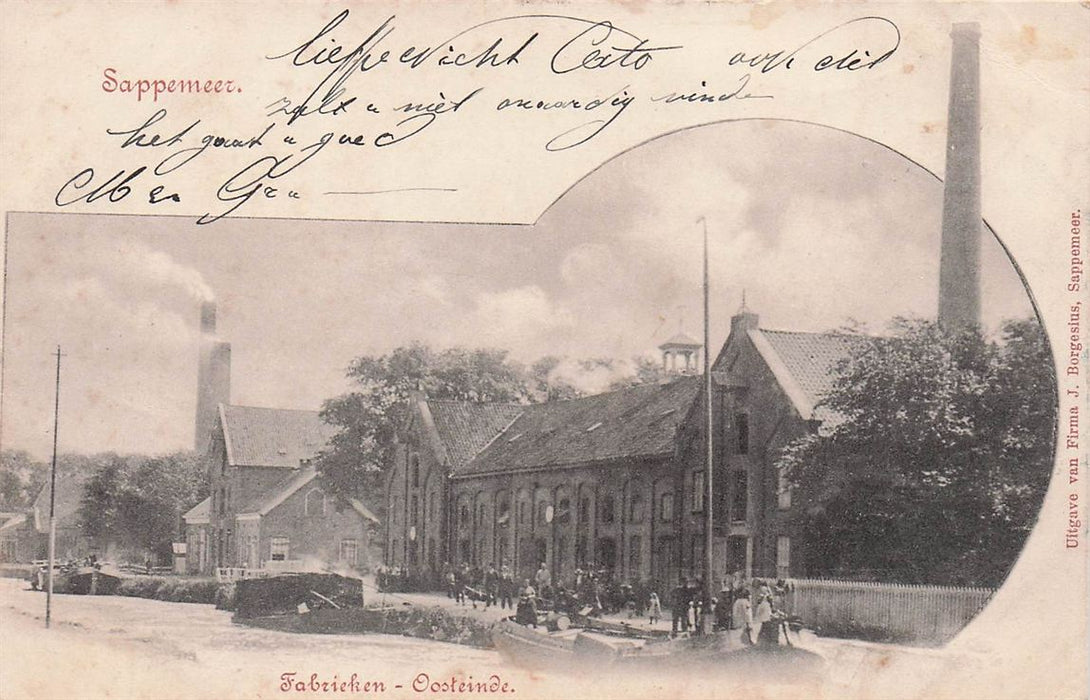 Sappemeer.
liefse Nicht Cato ook die
zult u niet onaardig vinde
het gaat u goed
Uitgave van Firma J. Borgesius, Sappemeer.
Fabrieken - Oosteinde.